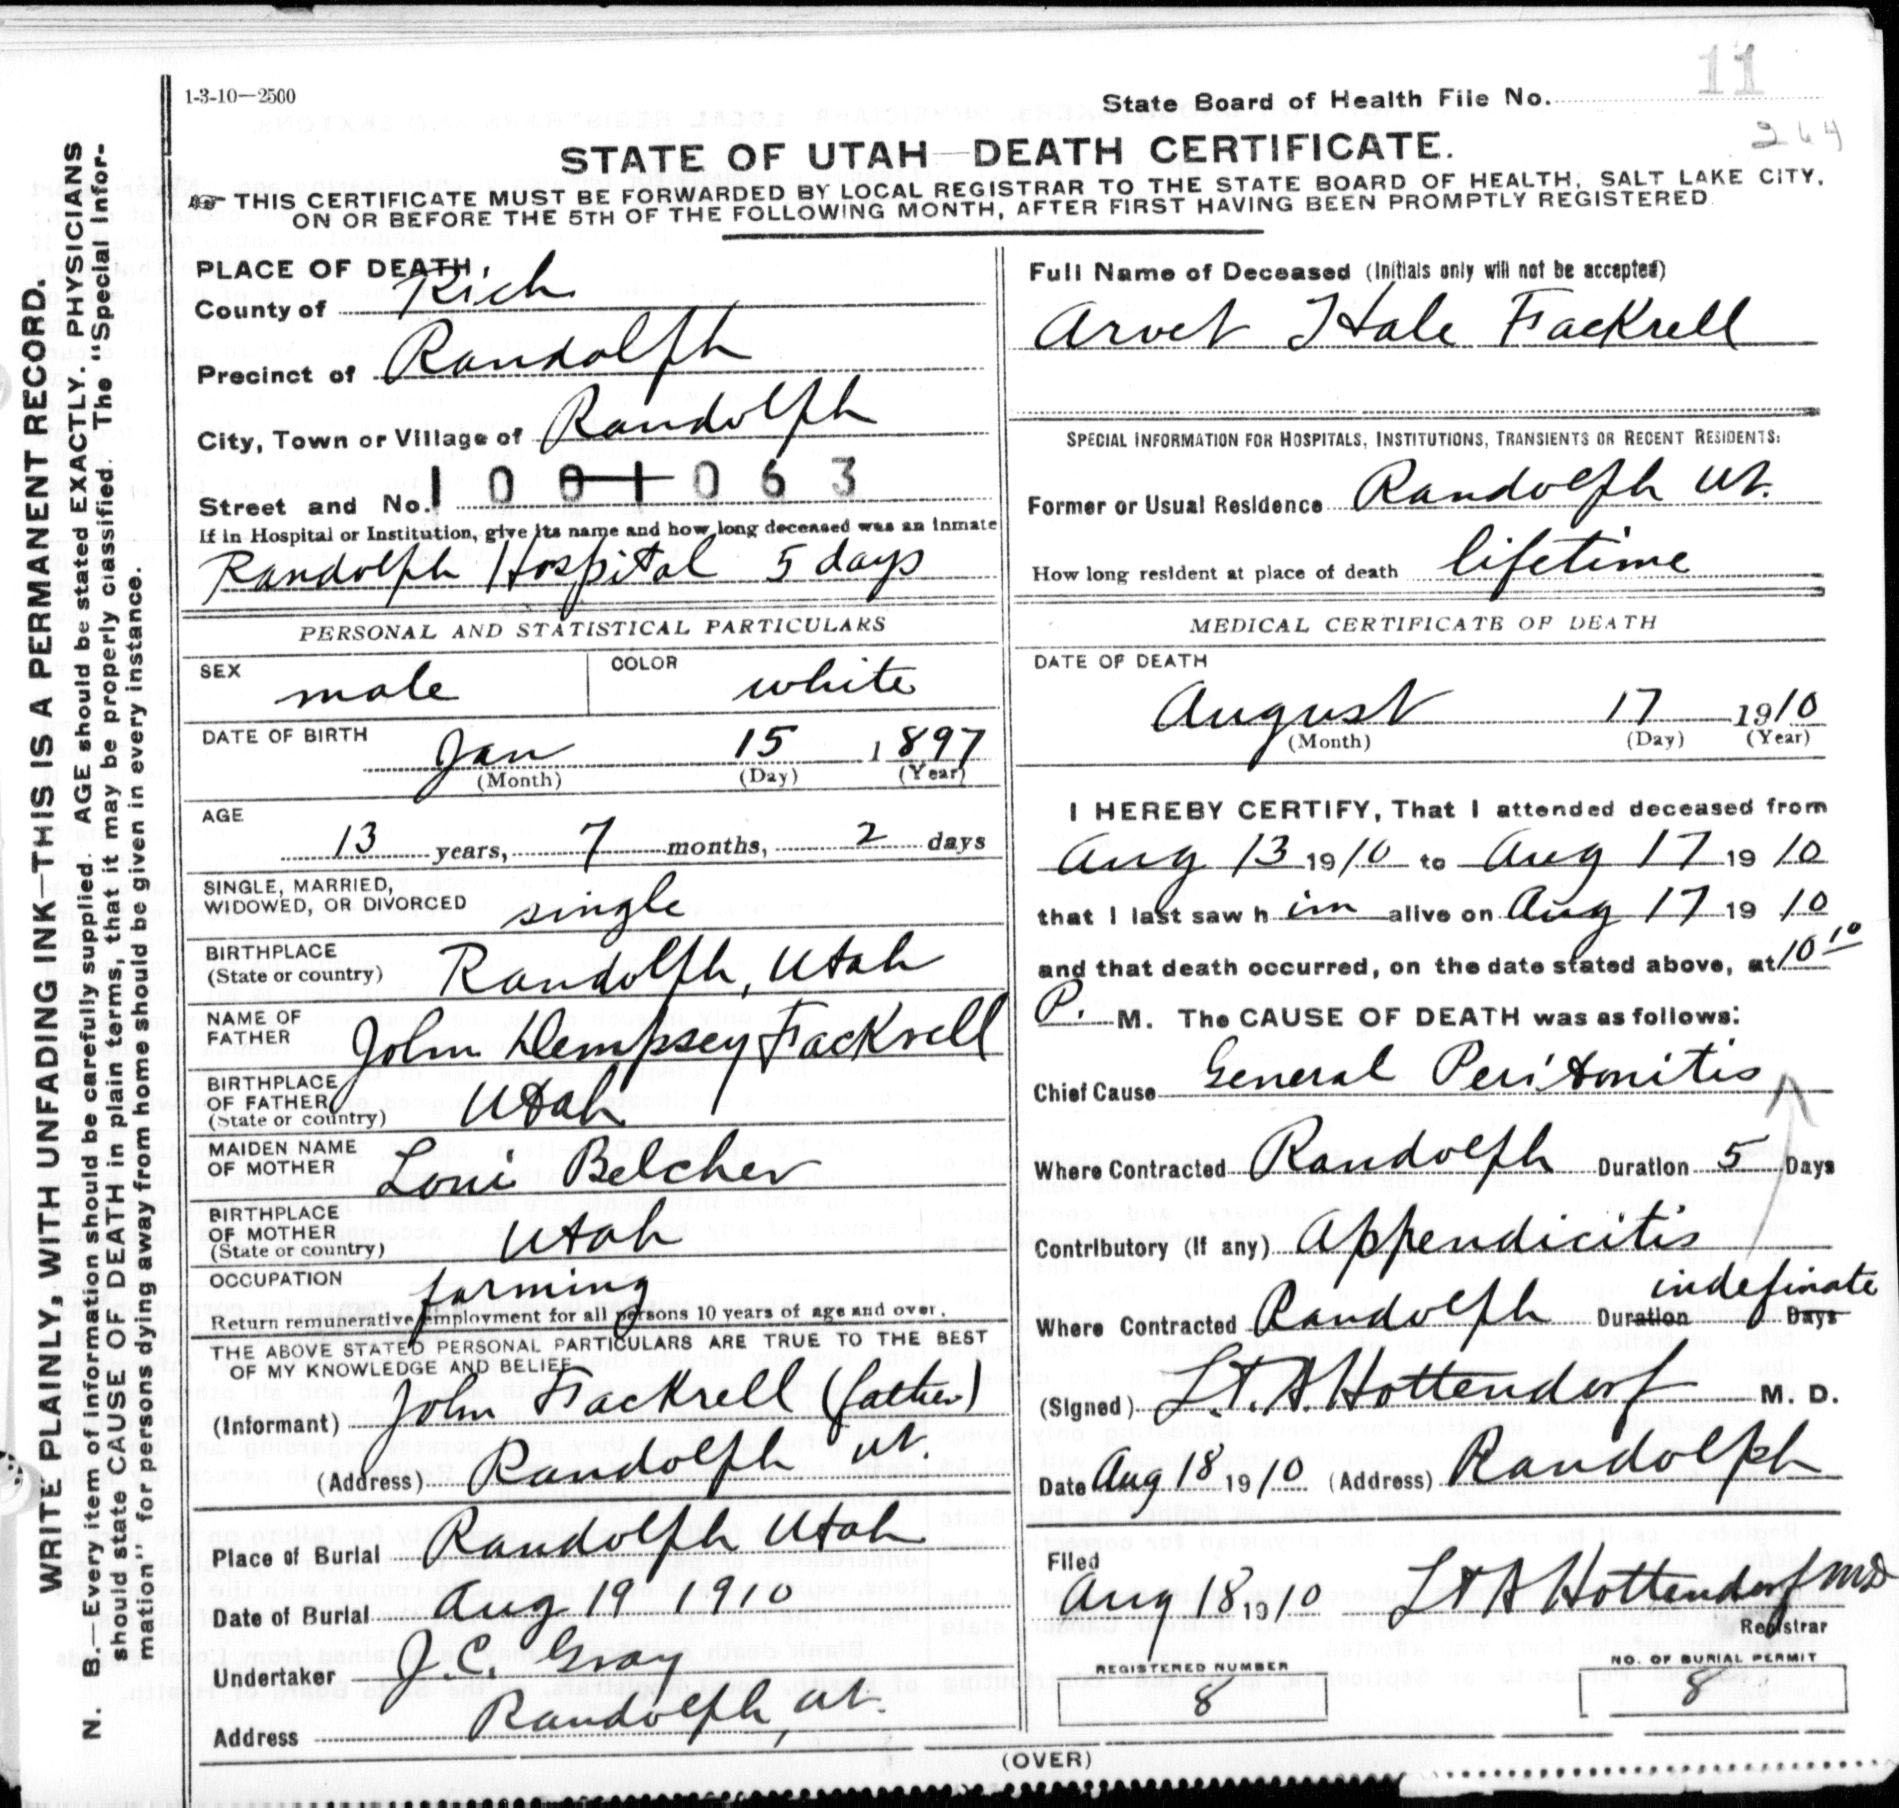 11
1-3-10—2500
State Board of Health File No.
264
STATE OF UTAH—DEATH CERTIFICATE.
THIS CERTIFICATE MUST BE FORWARDED BY LOCAL REGISTRAR TO THE STATE BOARD OF HEALTH, SALT LAKE CITY,
ON OR BEFORE THE 5TH OF THE FOLLOWING MONTH, AFTER FIRST HAVING BEEN PROMPTLY REGISTERED
WRITE PLAINLY, WITH UNFADING INK—THIS IS A PERMANENT RECORD.
N. B.—Every item of information should be carefully supplied. AGE should be stated EXACTLY. PHYSICIANS
should state CAUSE OF DEATH in plain terms, that it may be properly classified. The "Special Infor-
mation" for persons dying away from home should be given in every instance.
PLACE OF DEATH,
County of Rich
Precinct of Randolph
City, Town or Village of Randolph
1001063
Street and No.
If in Hospital or Institution, give its name and how long deceased was an inmate
Randolph Hospital 5 days
PERSONAL AND STATISTICAL PARTICULARS
SEX male COLOR white
DATE OF BIRTH
Jan 15 1897
(Month) (Day) (Year)
AGE
13 years, 7 months, 2 days
SINGLE, MARRIED,
WIDOWED, OR DIVORCED single
BIRTHPLACE
(State or country) Randolph, Utah
NAME OF
FATHER John Dempsey Fackrell
BIRTHPLACE
OF FATHER
(State or country) Utah
MAIDEN NAME
OF MOTHER Loui Belcher
BIRTHPLACE
OF MOTHER
(State or country) Utah
OCCUPATION farming
Return remunerative employment for all persons 10 years of age and over.
THE ABOVE STATED PERSONAL PARTICULARS ARE TRUE TO THE BEST
OF MY KNOWLEDGE AND BELIEF
(Informant) John Fackrell (father)
(Address) Randolph Ut.
Place of Burial Randolph Utah
Date of Burial Aug 19 1910
Undertaker J.C. Gray
Address Randolph, Ut.
Full Name of Deceased (Initials only will not be accepted)
Arvet Hale Fackrell
SPECIAL INFORMATION FOR HOSPITALS, INSTITUTIONS, TRANSIENTS OR RECENT RESIDENTS:
Former or Usual Residence Randolph Ut.
How long resident at place of death lifetime
MEDICAL CERTIFICATE OF DEATH
DATE OF DEATH
August 17 1910
(Month) (Day) (Year)
I HEREBY CERTIFY, That I attended deceased from
Aug 13 1910 to Aug 17 1910
that I last saw him alive on Aug 17 1910
and that death occurred, on the date stated above, at 10 10
P. M. The CAUSE OF DEATH was as follows:
Chief Cause General Peritonitis
Where Contracted Randolph Duration 5 Days
Contributory (if any) Appendicitis
indefinate
Where Contracted Randolph Duration Days
(Signed) Lt. A. Hottendorf M. D.
Date Aug 18 1910 (Address) Randolph
Filed
Aug 18 1910 Lt A Hottendorf MD
Registrar
REGISTERED NUMBER NO. OF BURIAL PERMIT
8 8
(OVER)